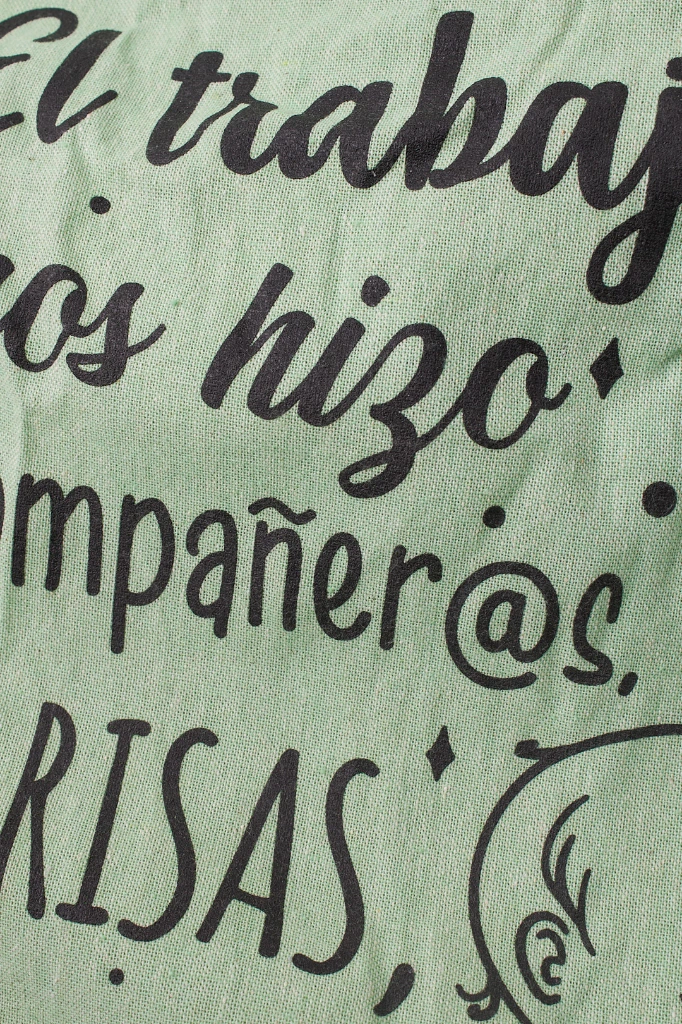 El trabaj
os hizo
ompañer@s,
RISAS,